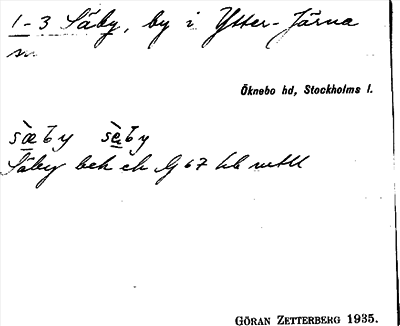 1-3 Säby, by i Ytter-Järna
sn.
Öknebo hd, Stockholms l.
sæ̀by sèby
Säby bek ek G 67
GÖRAN ZETTERBERG 1935.